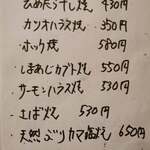 430円
カツオハラス焼 350円
ホッケ焼 580円
しまあじカブト焼 550円
サーモンハラス焼 530円
・さば焼 530円
・天然ぶりカマ塩焼 650円